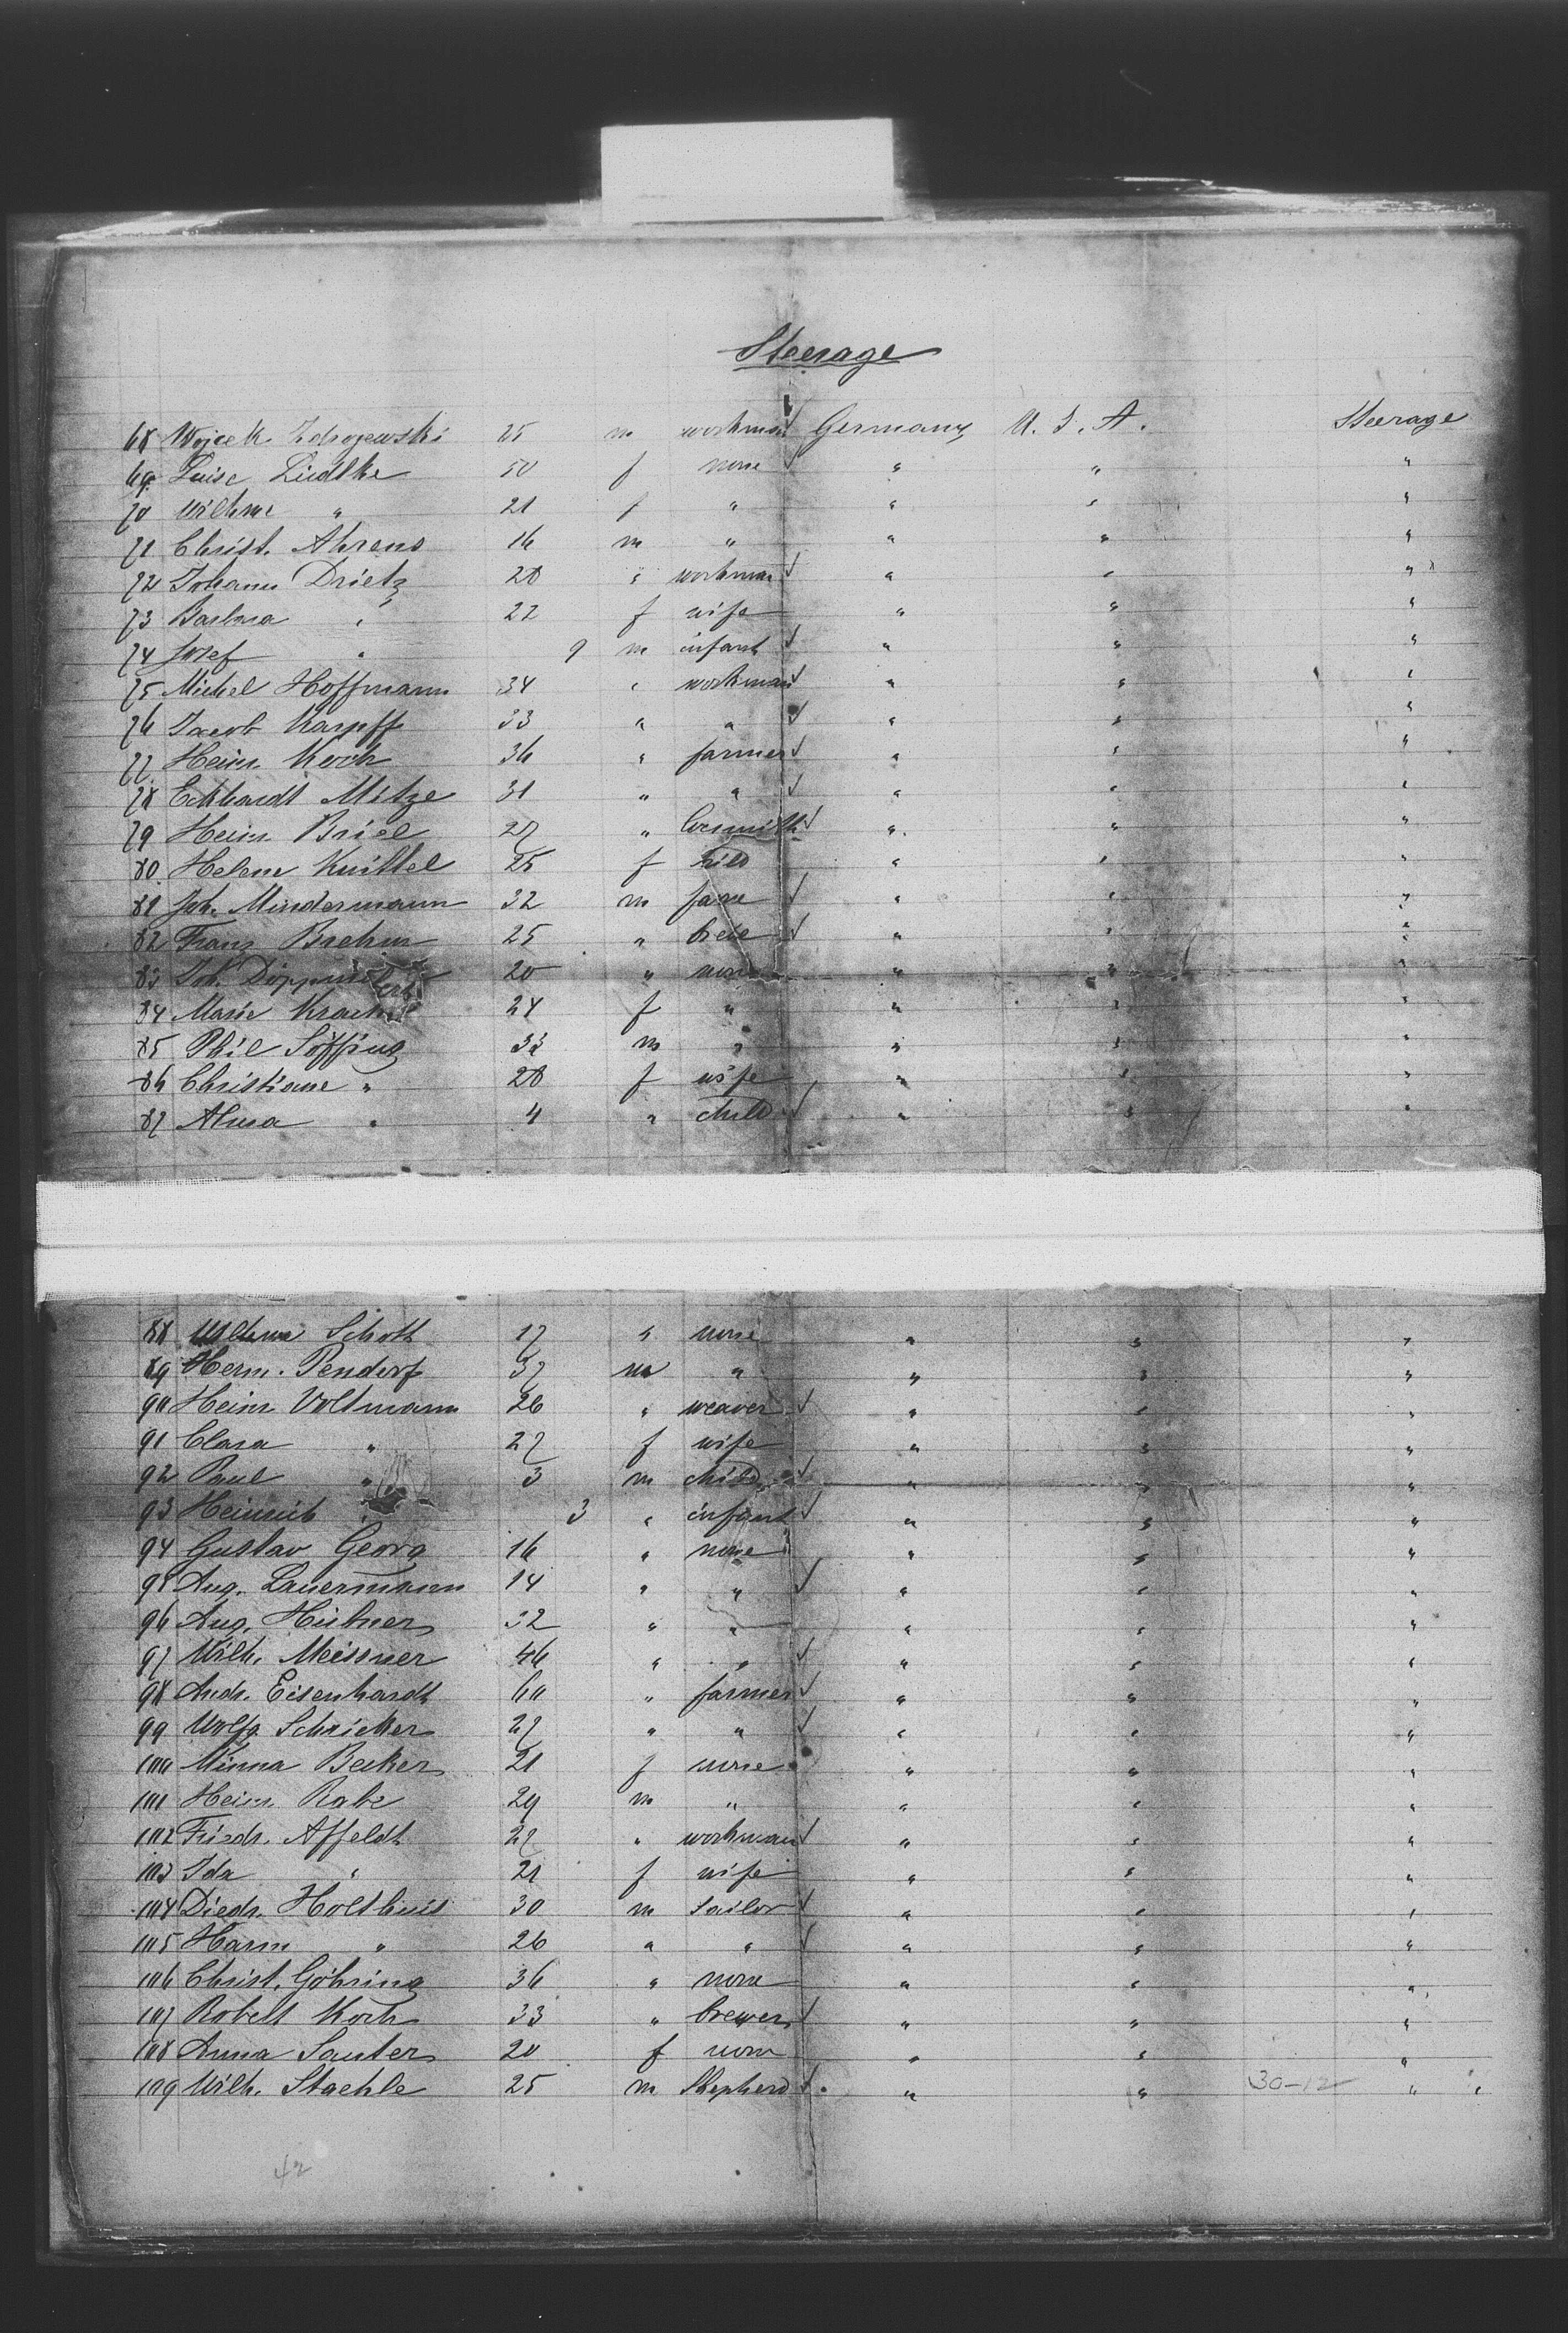 Steerage
68 Wojcek Zdrojewski 25 m workman Germany U. S. A. Steerage
69 Luise Lüdtke 50 f none " " "
70 Wilhme " 21 f " " " "
71 Christ. Ahrens 16 m " " " "
72 Johann Drietz 28 " workman " " "
73 Barbara " 22 f wife " " "
74 Josef " 9 m infant " " "
75 Michel Hoffmann 34 " workman " " "
76 Jacob Kampff 33 " " " " "
77 Heinr. Koch 36 " farmer " " "
78 Eckhardt Mitze 31 " " " " "
79 Heinr. Briel 27 " " " "
80 Helene Knittel 25 f " " "
81 Joh. Mindermann 32 m " " "
82 Franz Brehm 25 " " " "
83 Joh. 20 " none " " "
84 Marie 24 f " " " "
85 Phil Söffing 33 m " " " "
86 Christiane " 28 f wife " " "
87 " 4 " child " " "
88 Wilhme Schott 17 " none " " "
89 Herm. Pendorf 37 m " " " "
90 Heinr Voltmann 26 " weaver " " "
91 Clara " 27 f wife " " "
92 Paul " 3 m child " " "
93 Heinrich " 3 " infant " " "
94 Gustav Georg 16 " none " " "
95 Aug. Lauermann 14 " " " " "
96 Aug. Hübner 32 " " " " "
97 Wilh. Meissner 46 " " " " "
98 Andr. Eisenhardt 60 " farmer " " "
99 Wolfg. Schricker 27 " " " " "
100 Minna Becker 21 f none " " "
101 Heinr. Rabe 29 m " " " "
102 Friedr. Affeldt 27 " workman " " "
103 Ida " 21 f wife " " "
104 Diedr. Holthuis 30 m sailor " " "
105 Harm " 26 " " " " "
106 Christ. Göhring 36 " none " " "
107 Robert Koch 33 " brewer " " "
108 Anna Sauter 20 f none " " "
109 Wilh. Staehle 25 m Shepherd " " 30-12 "
42